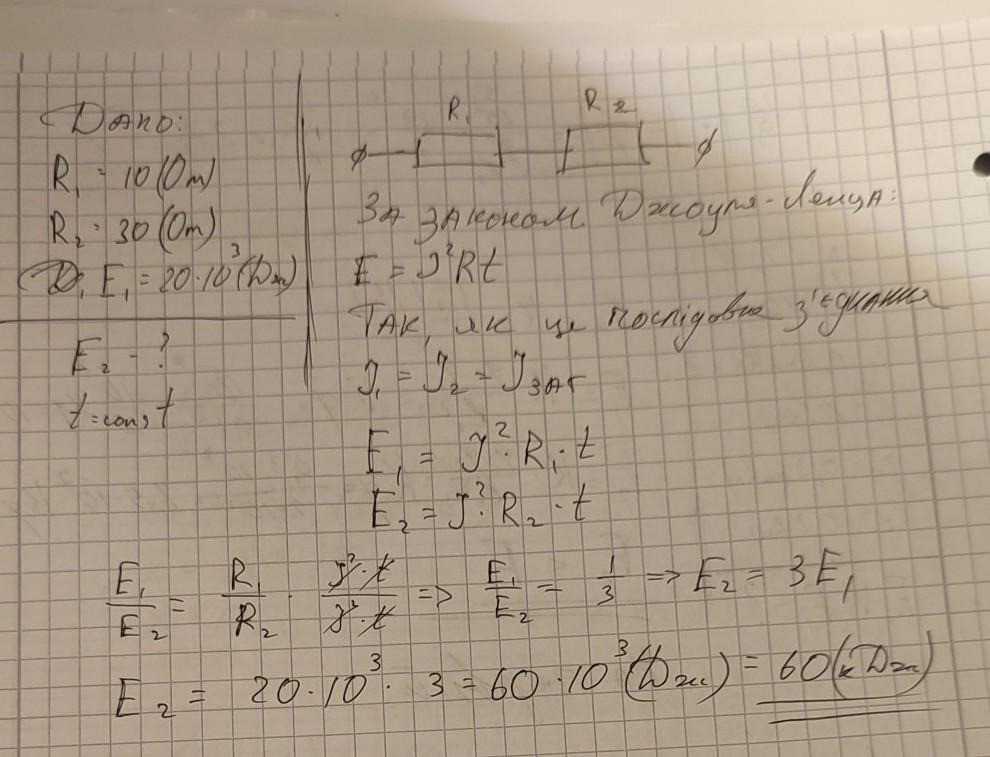 Дано:
R₁ = 10 (Om)
R₂ = 30 (Om)
E₁ = 20·10³ (Дж)
E₂ - ?
t = const
R₁ R₂
За законом Джоуля-Ленца:
E = J²Rt
Так, як це послідовне з'єднання
J₁ = J₂ = Jзаг
E₁ = J²·R₁·t
E₂ = J²·R₂·t
E₁/E₂ = R₁/R₂ · J²·t/J²·t => E₁/E₂ = 1/3 => E₂ = 3E₁
E₂ = 20·10³·3 = 60·10³ (Дж) = 60 (кДж)